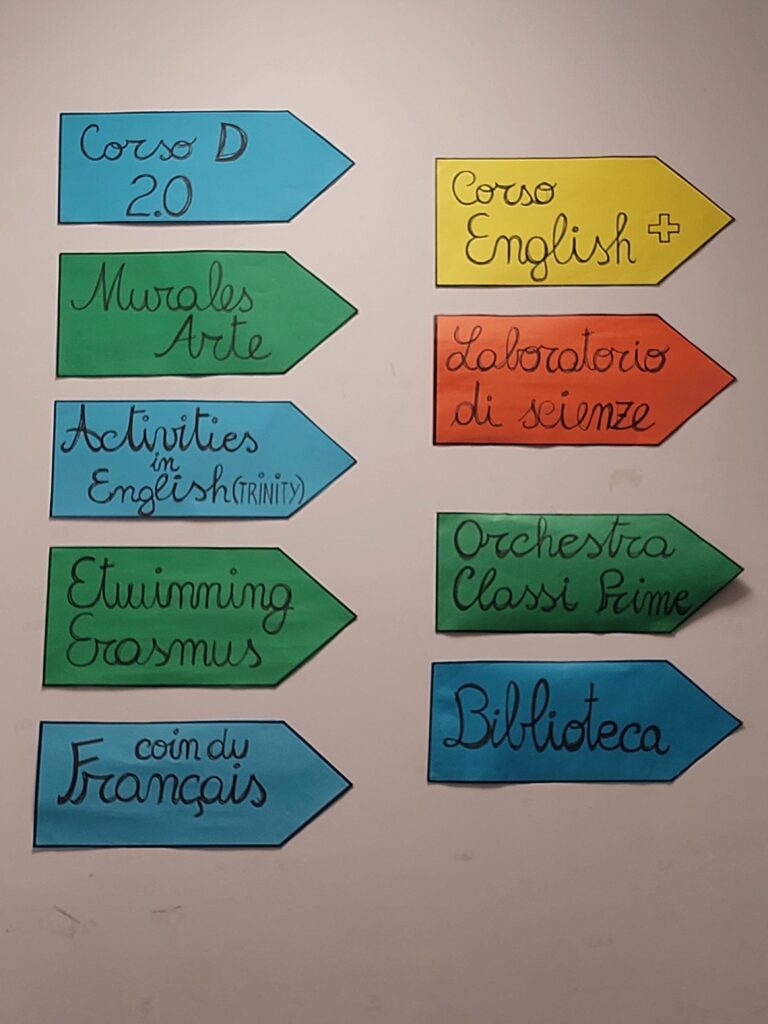 Corso D
2.0
Murales
Arte
Activities
in
English (TRINITY)
Etwinning
Erasmus
coin du
Français
Corso
English +
Laboratorio
di scienze
Orchestra
Classi Prime
Biblioteca